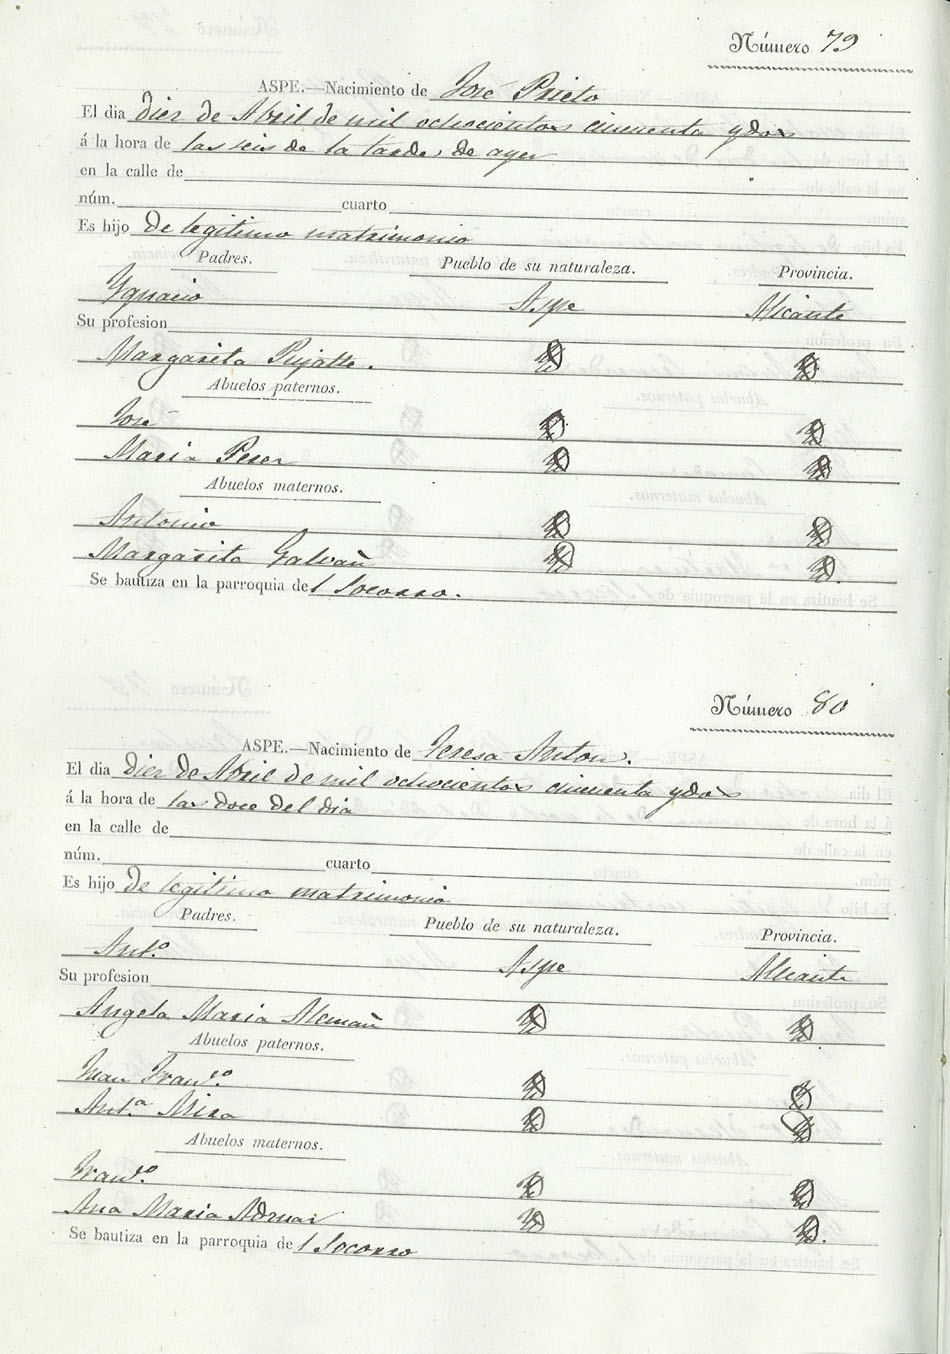 Número 79
ASPE.—Nacimiento de José Prieto
El dia diez de Abril de mil ochocientos cincuenta y dos
á la hora de las seis de la tarde, de ayer
en la calle de
núm. cuarto
Es hijo de legitimo matrimonio
Padres. Pueblo de su naturaleza. Provincia.
Ygnacio Aspe Alicante
Su profesion
Margarita Pujalte.
Abuelos paternos.
José
Maria Perez
Abuelos maternos.
Antonio
Margarita Galvañ
Se bautiza en la parroquia del Socorro.
Número 80
ASPE.—Nacimiento de Teresa Anton.
El dia diez de Abril de mil ochocientos cincuenta y dos
á la hora de las doce del dia
en la calle de
núm. cuarto
Es hijo de legitimo matrimonio
Padres. Pueblo de su naturaleza. Provincia.
Antº Aspe Alicante
Su profesion
Angela Maria Alemañ
Abuelos paternos.
Juan Franco
Antª Mira
Abuelos maternos.
Franco
Ana Maria
Se bautiza en la parroquia del Socorro